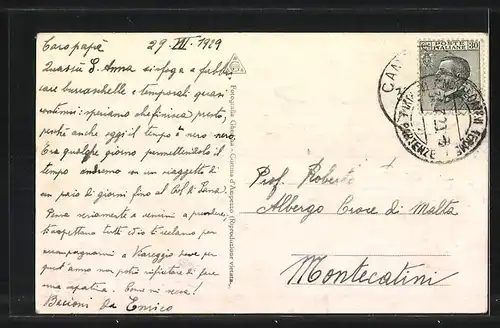 29 VII 1929
Caro papà
Quassù S. Anna si sfoga a fabbri
care burraschelle e temporali quasi
continui: speriamo che finisca presto,
perchè anche oggi il tempo è nero nero.
Fra qualche giorno permettendolo il
tempo andremo in un viaggetto di
un paio di giorni fino al
Pensa seriamente a venirci a prendere,
ti aspettano tutti
accompagnarmi a Viareggio dove per
quest'anno non potrò rifiutare di fare
una capatina. Come mi secca!
Bacioni da Enrico
Fotografia Ghedina - Cortina d'Ampezzo (Riproduzione vietata)
POSTE ITALIANE 30
Prof. Roberto
Albergo Croce di Malta
Montecatini